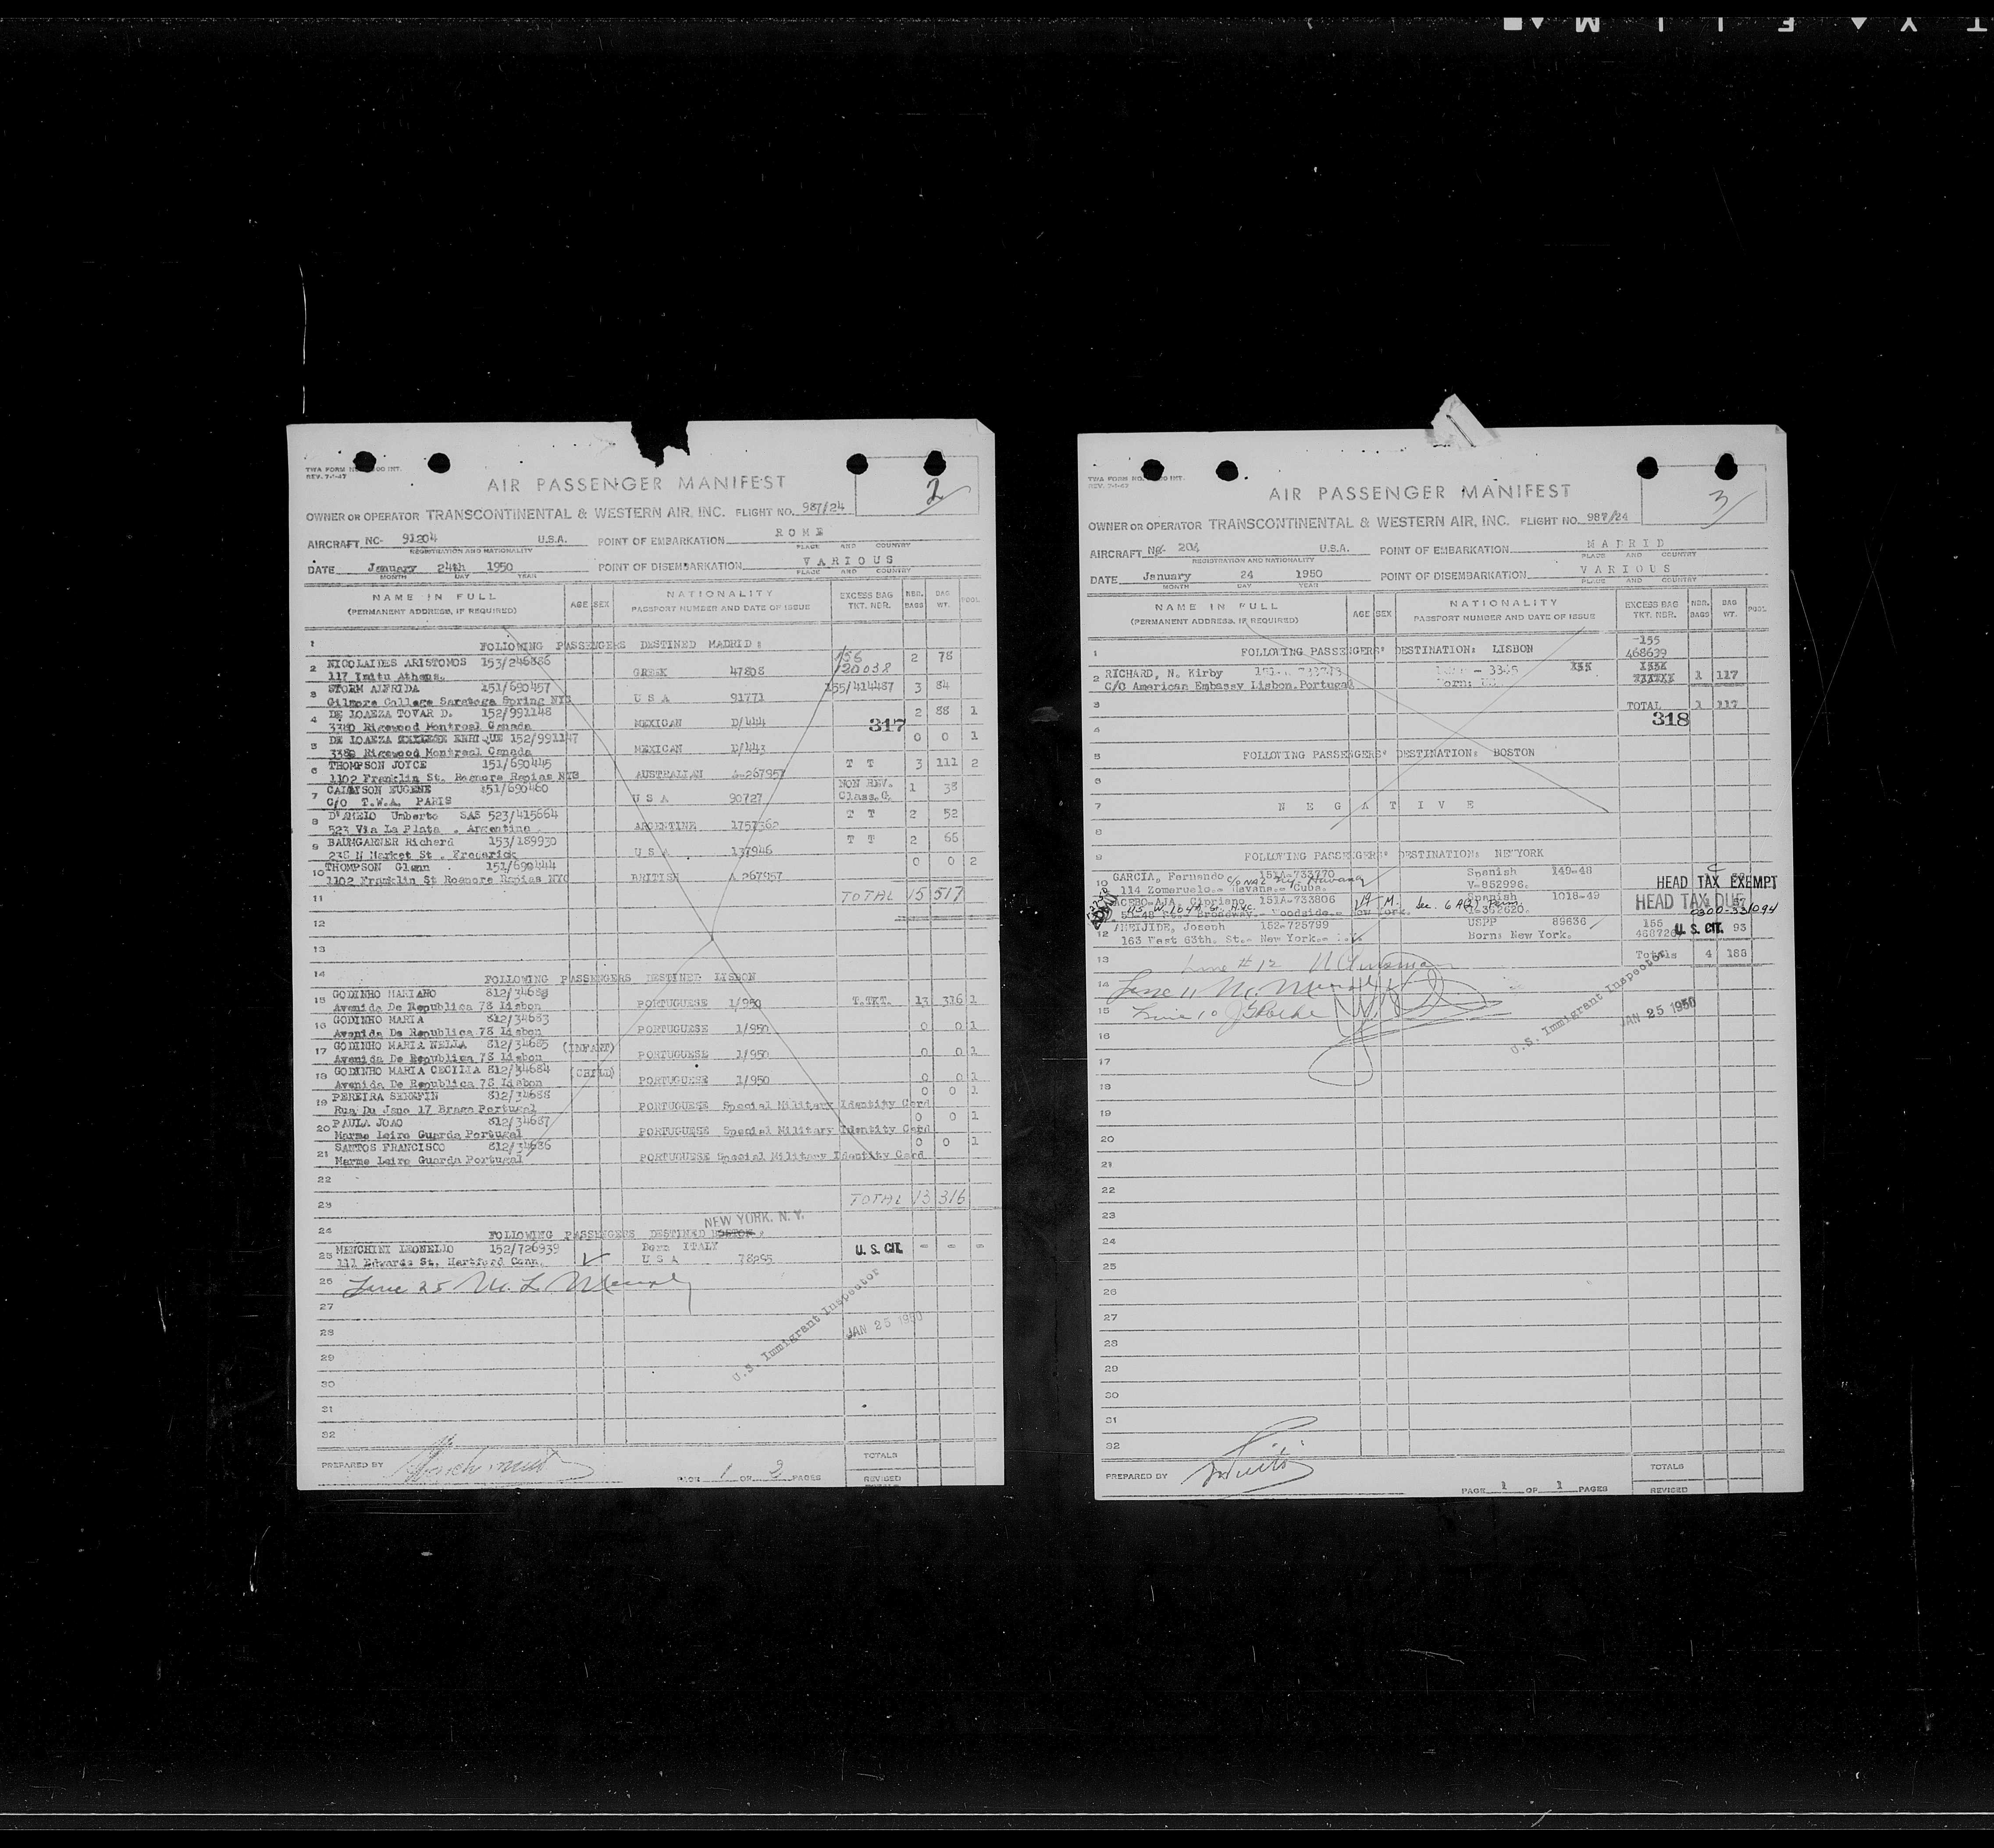 TWA FORM NO. 00 INT.
REV. 7-1-47
AIR PASSENGER MANIFEST
2
OWNER OR OPERATOR TRANSCONTINENTAL & WESTERN AIR, INC. FLIGHT NO. 987/24
AIRCRAFT NC- 91204 U.S.A. POINT OF EMBARKATION ROME
REGISTRATION AND NATIONALITY PLACE AND COUNTRY
DATE January 24th 1950 POINT OF DISEMBARKATION VARIOUS
MONTH DAY YEAR PLACE AND COUNTRY
NAME IN FULL AGE SEX NATIONALITY EXCESS BAG NBR. BAG POOL
(PERMANENT ADDRESS, IF REQUIRED) PASSPORT NUMBER AND DATE OF ISSUE TKT. NBR. BAGS WT.
1 FOLLOWING PASSENGERS DESTINED MADRID:
2 NICOLAIDES ARISTOMOS 153/246886 2 78
117 Imitu Athens. GREEK 47808 120038
3 STORM ALFRIDA 151/690457 155/414487 3 84
Gilmore College Saratoga Spring NYS U S A 91771
4 DE LOAEZA TOVAR D. 152/991148 2 88 1
3380 Rigewood Montreal Canada MEXICAN D/444 317
5 DE LOAEZA ENRIQUE 152/991147 0 0 1
3380 Rigewood Montreal Canada MEXICAN D/443
6 THOMPSON JOYCE 151/690445 T T 3 111 2
1102 Franklin St. Roenore Rapias NYS AUSTRALIAN A-267957
7 EUGENE 151/690480 NON REV. 1 38
C/O T.W.A. PARIS U S A 90727 Class.C.
8 D'AMELO Umberto SAS 523/415664 T T 2 52
523 Via La Plata . Argentina . ARGENTINE 1757362
9 BAUMGARNER Richard 153/189930 T T 2 66
238 N Market St . Frederick U S A 137946
10 THOMPSON Glenn 151/690444 0 0 2
1102 Franklin St Roenore Rapias NYC BRITISH A 267957
11 TOTAL 15 517
12
13
14 FOLLOWING PASSENGERS DESTINED LISBON
15 GODINHO MARIANO 812/34682
Avenida De Republica 78 Lisbon PORTUGUESE 1/950 T.TKT. 13 316 1
16 GODINHO MARIA 812/34683
Avenida De Republica 78 Lisbon PORTUGUESE 1/950 0 0 1
17 GODINHO MARIA NELLA 812/34685 (INFANT)
Avenida De Republica 78 Lisbon PORTUGUESE 1/950 0 0 1
18 GODINHO MARIA CECILIA 812/34684 (CHILD)
Avenida De Republica 78 Lisbon PORTUGUESE 1/950 0 0 1
19 PEREIRA SERAFIN 812/34688 0 0 1
Rua Du Jano 17 Braga Portugal PORTUGUESE Special Military Identity Card
20 PAULA JOAO 812/34687 0 0 1
Marme Leiro Guarda Portugal PORTUGUESE Special Military Identity Card
21 SANTOS FRANCISCO 812/34686 0 0 1
Marme Leiro Guarda Portugal PORTUGUESE Special Military Identity Card
22
23 TOTAL 13 316
NEW YORK, N. Y.
24 FOLLOWING PASSENGERS DESTINED BOSTON
25 MENCHINI LEONELLO 152/726939 Born ITALY U. S. CIT. - - -
111 Edwards St. Hartford Conn. U S A 78295
26 Line 25
27
28 U.S. Immigrant Inspector JAN 25 1950
29
30
31
32
PREPARED BY TOTALS
PAGE 1 OF 2 PAGES REVISED
TWA FORM NO. 00 INT.
REV. 7-1-47
AIR PASSENGER MANIFEST
3
OWNER OR OPERATOR TRANSCONTINENTAL & WESTERN AIR, INC. FLIGHT NO. 987/24
AIRCRAFT NC- 204 U.S.A. POINT OF EMBARKATION MADRID
REGISTRATION AND NATIONALITY PLACE AND COUNTRY
DATE January 24 1950 POINT OF DISEMBARKATION VARIOUS
MONTH DAY YEAR PLACE AND COUNTRY
NAME IN FULL AGE SEX NATIONALITY EXCESS BAG NBR. BAG POOL
(PERMANENT ADDRESS, IF REQUIRED) PASSPORT NUMBER AND DATE OF ISSUE TKT. NBR. BAGS WT.
-155
1 FOLLOWING PASSENGERS' DESTINATION: LISBON 468639
2 RICHARD, N. Kirby
C/O American Embassy Lisbon.Portugal 1 117
3 TOTAL 1 117
318
4
5 FOLLOWING PASSENGERS' DESTINATION: BOSTON
6
7 N E G A T I V E
8
9 FOLLOWING PASSENGERS' DESTINATION: NEWYORK
10 GARCIA, Fernando 151A-733770 Spanish 149-48
114 Zomeruelo.- Havana.- Cuba. V-852996. HEAD TAX EXEMPT
11 ACEBO-AJA, Cipriano 151A-733806 Spanish 1018-49 HEAD TAX DUE
Broadway.- Woodside.- New York. Sec. 6 0300-331094
12 MEIJIDE, Joseph 152-725799 USPP 89636 155 U. S. CIT. 93
163 West 63th. St.- New York.- Born: New York.
13 Line #12 Totals 4 188
14 Line 11
15 Line 10
U.S. Immigrant Inspector JAN 25 1950
16
17
18
19
20
21
22
23
24
25
26
27
28
29
30
31
32
PREPARED BY TOTALS
PAGE 1 OF 1 PAGES REVISED